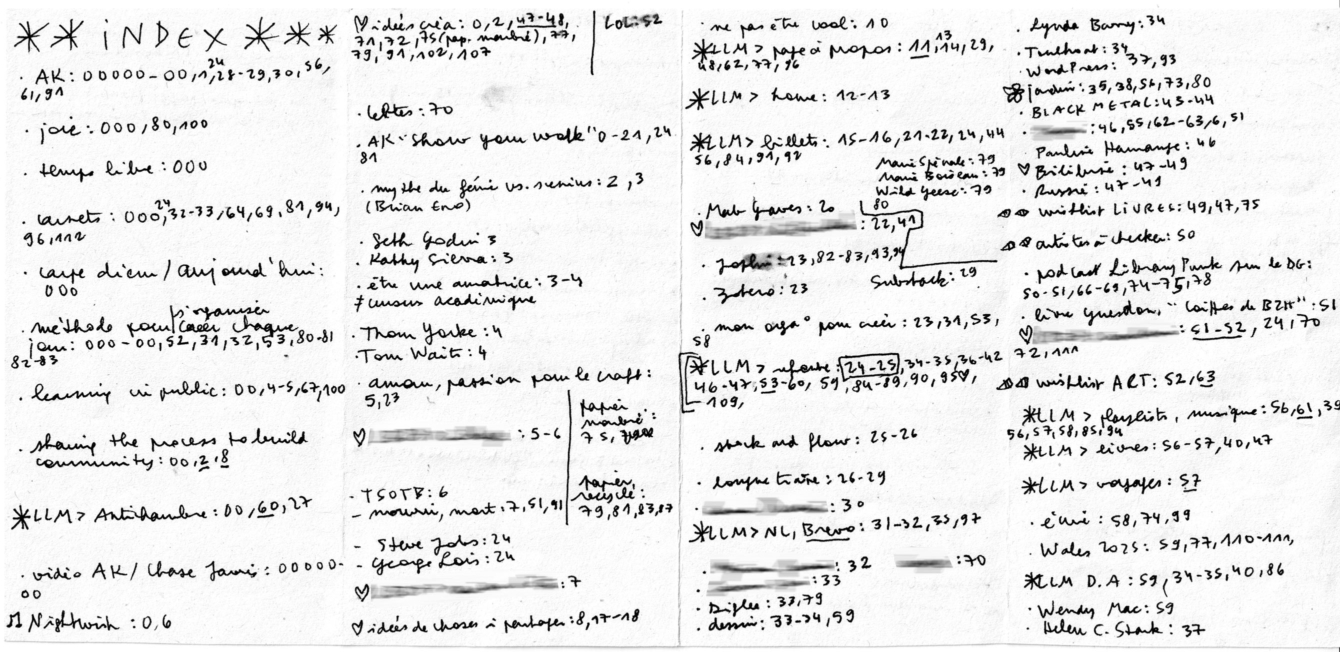 ** INDEX ***
· AK: 00000-00,1,24,28-29,30,56,
61,91
· joie: 000,80,100
· temps libre: 000
· carnets: 000,24,32-33,64,69,81,94,
96,112
· carpe diem/aujourd'hui:
000
s'organiser
· méthode pour/créer chaque
jour: 000-00,52,31,32,53,80-81
82-83
· learning in public: 00,4-5,67,100
· sharing the process to build
community: 00,2,8
*LLM> Antichambre: 00,60,27
· vidéo AK/Chase Jarvis: 00000-
00
♫ Nightwish: 0,6
♡idées créa: 0,2,47-48,
71,72,75(pap. marbré),77,
79,91,102,107
LOL:52
· lettres: 70
· AK "Show your work" 0-21,24
81
· mythe du génie vs. scenius: 2,3
(Brian Eno)
· Seth Godin 3
· Kathy Sierra: 3
· être une amatrice: 3-4
≠ cursus académique
· Thom Yorke: 4
· Tom Waits: 4
· amour, passion pour le craft:
5,23
♡ : 5-6
papier
marbré:
75,
· TSOTB: 6
- mourir, mort: 7,51,91
papier
recyclé:
79,81,83,87
- Steve Jobs: 24
- George Lois: 24
♡ : 7
♡idées de choses à partager: 8,17-18
· ne pas être cool: 10
*LLM> page à propos: 11,13,14,29,
48,62,77,96
*LLM> home: 12-13
*LLM> billets: 15-16,21-22,24,44
56,84,91,92
Marie Spénale: 79
Marie Boiseau: 79
Wild Geese: 79
80
· Mab Graves: 20
♡ : 22,41
· Sophie : 23,82-83,93,94
Substack: 29
· Zotero: 23
· mon orga° pour créer: 23,31,53,
58
*LLM> refonte: 24-25,34-35,36-42
46-47,53-60, 59,84-89,90,95♡,
-109,
· stock and flow: 25-26
· longue traîne: 26-29
· : 30
*LLM>NL, Brevo: 31-32,35,97
· : 32
:70
· : 33
· Diglee: 33,79
· dessin: 33-34,59
· Lynda Barry: 34
· Truthout: 34
· WordPress: 37,93
jardin: 35,38,56,73,80
· BLACK METAL: 43-44
· : 46,55,62-63,6,51
· Pauline Harmange: 46
♡ Bibliluse: 47-49
· Russie: 47-49
wishlist LIVRES: 49,47,75
artistes à checker: 50
· podcast Library Punk sur le DG:
50-51,66-69,74-75,78
· livre question, "caffé de BZH": 51
♡ : 51-52, 24,70
72,111
wishlist ART: 52,63
*LLM> playlists, musique: 56,61,39
56,57,58,85,94
*LLM> livres: 56-57,40,47
*LLM> voyages: 57
· écrire: 58,74,99
· Wales 2025: 59,77,110-111,
*LLM D.A: 59,34-35,40,86
· Wendy Mac: 59
· Helen C. Stark: 37